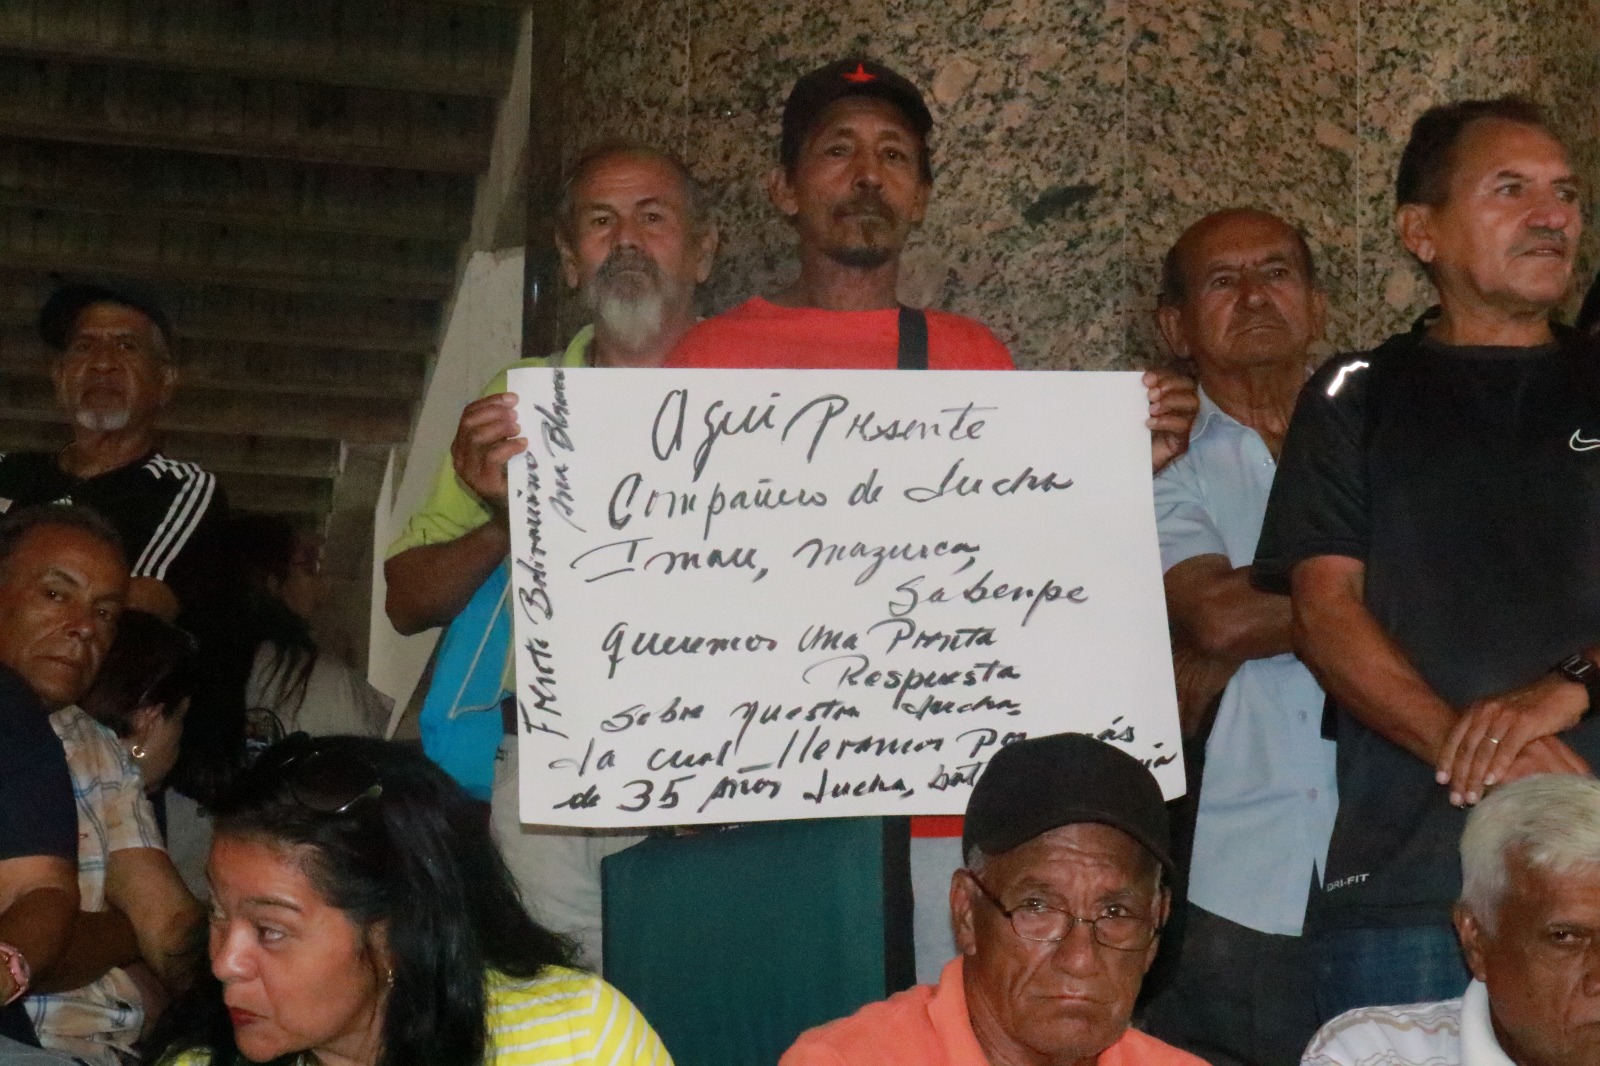 Aqui Presente
Compañero de Lucha
Imau, Mazurca,
Sabenpe
queremos una Pronta
Respuesta
sobre nuestra Lucha
la cual lleramos por más
de 35 años Lucha,
Frente Bolivariano
Ana Blanco
DRI-FIT